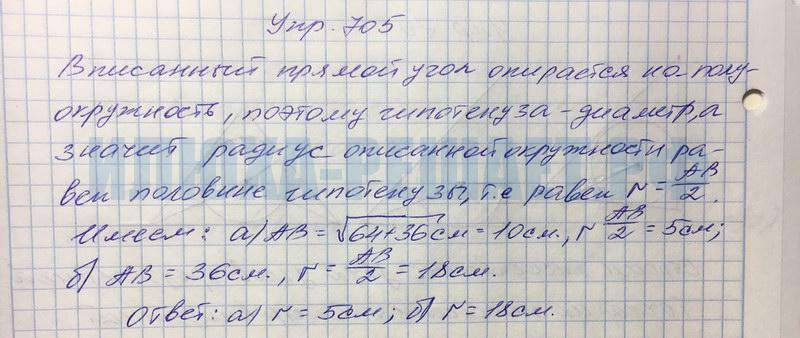 Упр. 705
Вписанный прямой угол опирается на полу-
окружность, поэтому гипотенуза - диаметр, а
значит радиус описанной окружности ра-
вен половине гипотенузы, т.е равен r = AB/2.
Имеем: а) AB = √64+36 см = 10 см., r AB/2 = 5 см;
б) AB = 36 см., r = AB/2 = 18 см.
Ответ: а) r = 5 см; б) r = 18 см.